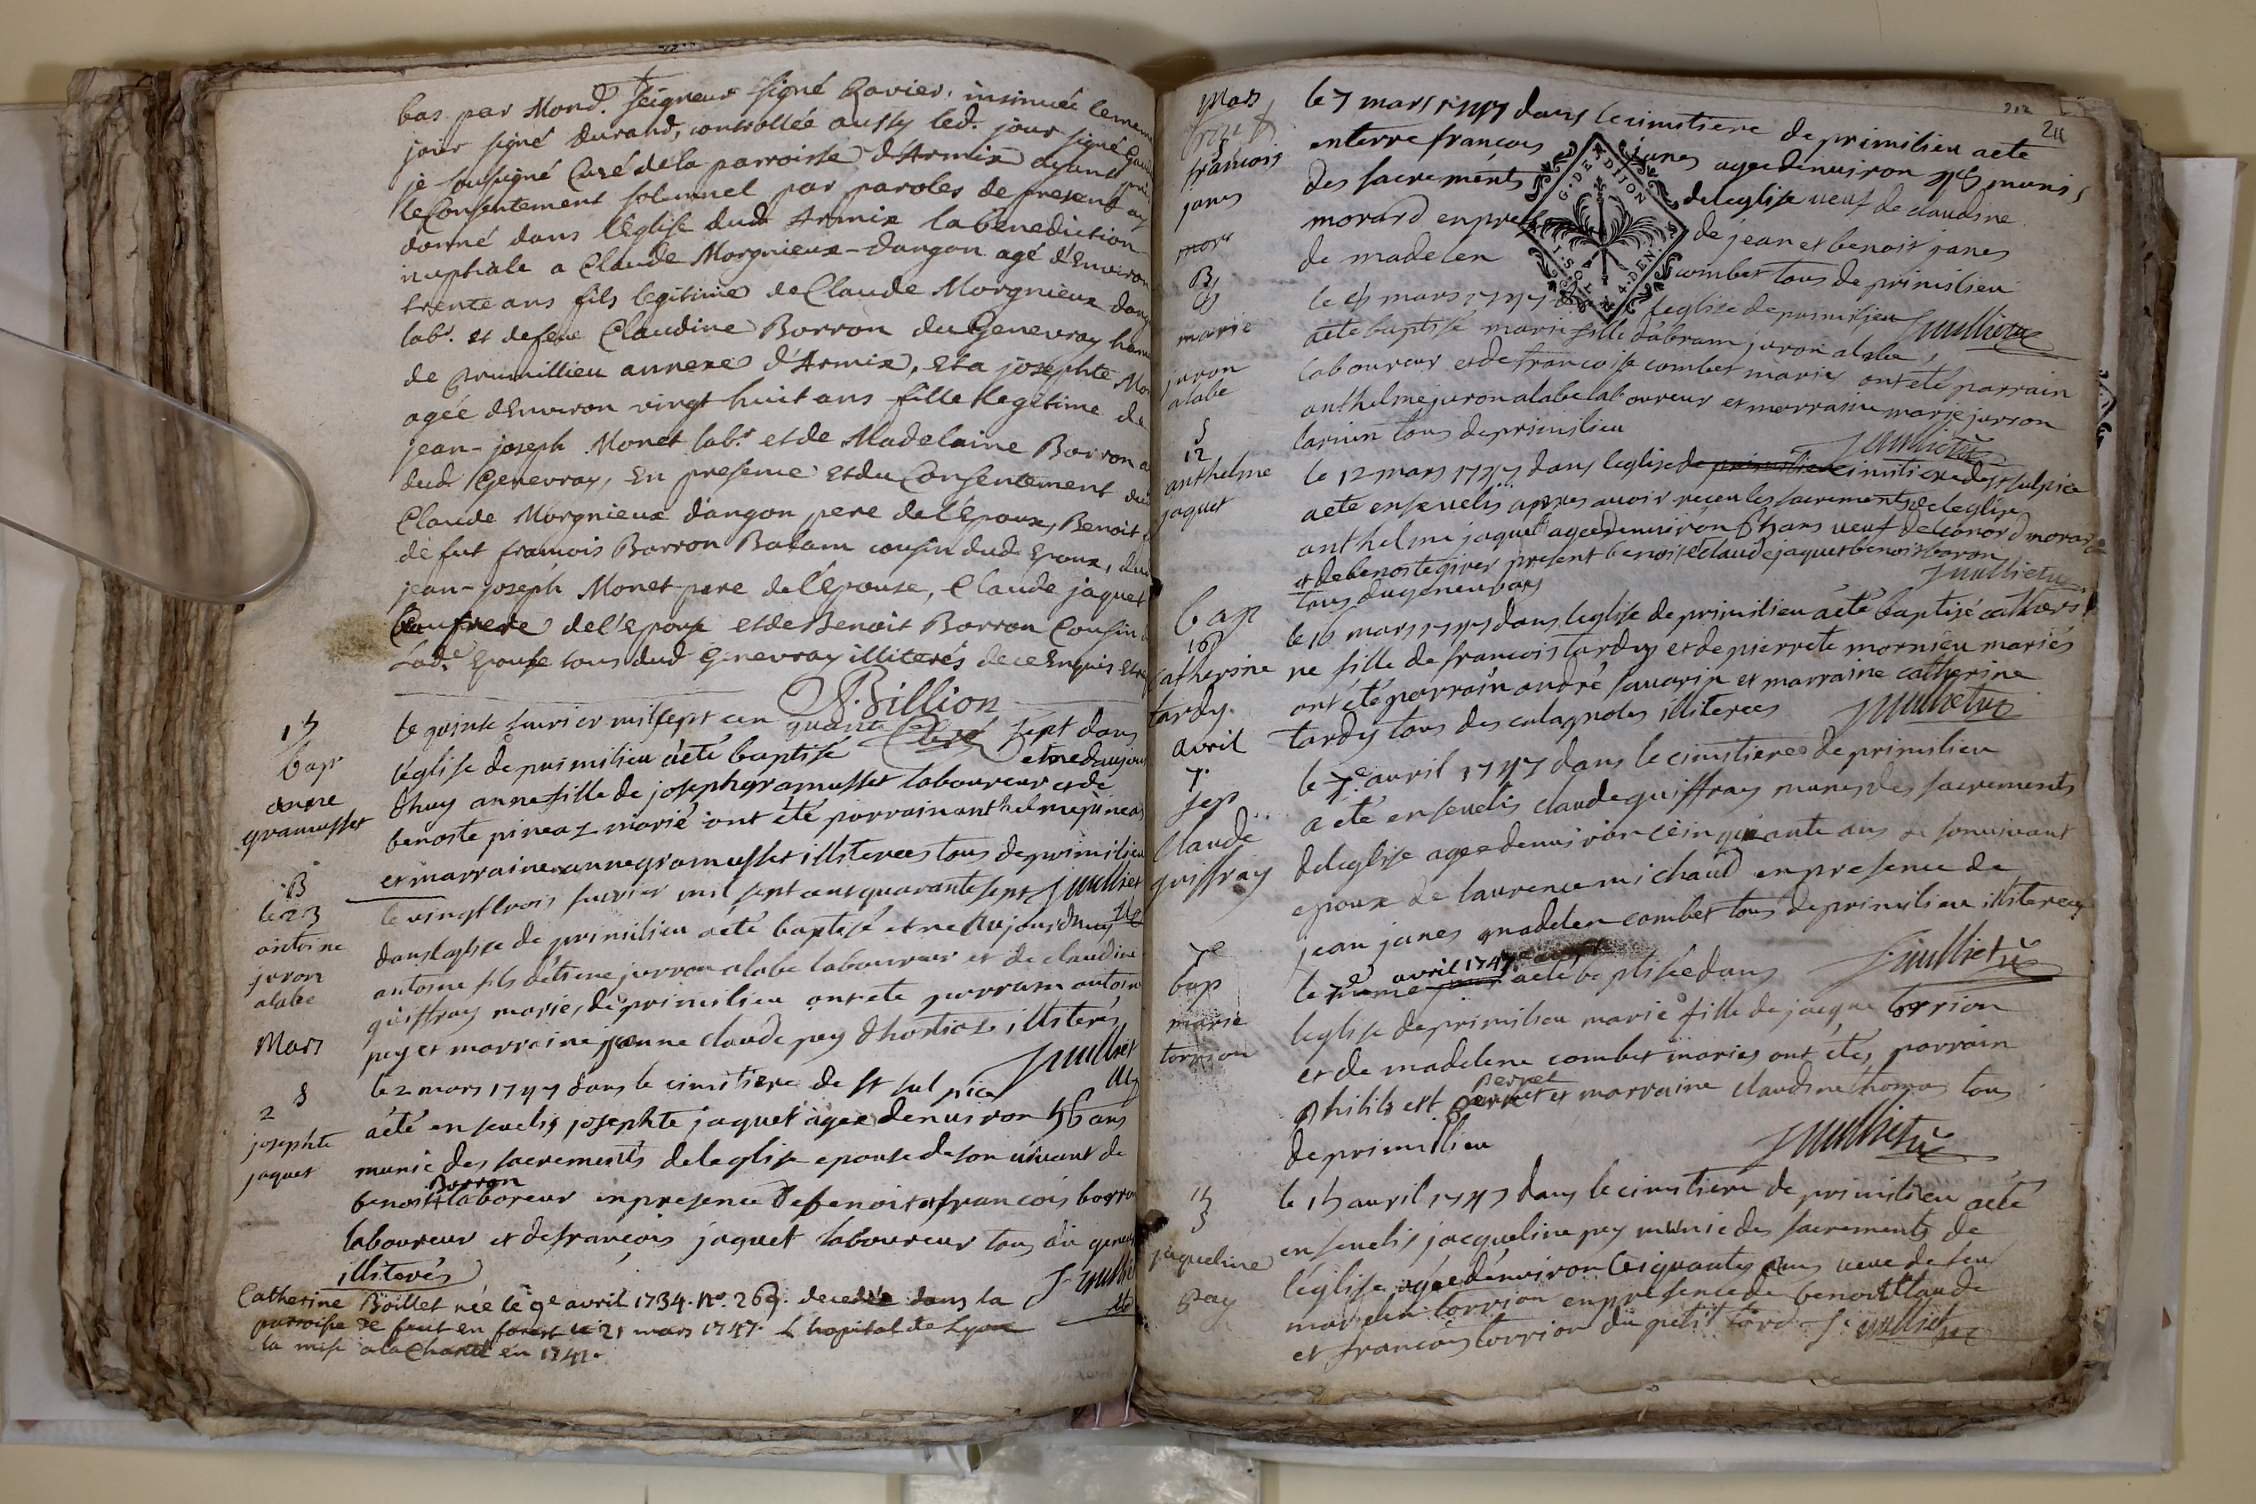 bas par Mond. seigneur signé Ravier, insinuée le meme
jour signé Durand, controllée aussy led. jour signé
je sousigné Curé de la parroisse d'Armix ayant pris
le Consentement solemnel par paroles de present ay
donné dans l'Eglise dud Armix la benediction
nuptiale a Claude Morgnieux-dangon agé d'Environ
trente ans fils legitime de Claude Morgnieux dang
lab.r et de feue Claudine Borron du Genevray ham
de Prumillieu annexe d'Armix, et a josephte Mon
agée d'Environ vingt huit ans fille legitime de
jean-joseph Monet lab.r et de Madelaine Borron a
dud Genevray, En presence et du Consentement dud
Claude Morgnieux d'angon pere de l'Epoux, Benoit
de fut francois Borron Balam cousin dud Epoux, dud
jean-joseph Monet pere de l'épouse, Claude jaquet
beaufrere de l'époux et de Benoit Borron Cousin
Lad.e Epouse tous dud Genevray illiterés de ce Enquis
Billion
15
bapt
anne
gramusset
le quinze fevrier mil sept cen quarante sept dans
l'église de primilieu a été baptisé et nee daujour
dhuy anne fille de joseph gramusset laboureur et de
benoste pineaz marié ont été parrain anthelme pinea
et marraine anne gramusset illiterees tous de primilieu
B
le 23
antoine
juron
alabe
le vingt trois fevrier mil sept cent quarante sept
dans leglise de primilieu a été baptisé et ne aujourdhuy
antoine fils d'étiene juron alabe laboureur et de claudine
quiffray mariés de primilieu ont ete parrain antoine
pey et marraine jeanne claude pey dhostiaz illiterés
Mars
2 S
josephte
jaquet
le 2 mars 1747 dans le cimitiere de st sulpice
a été enseveli josephte jaquet agee denviron 56 ans
munie des sacrements de leglise epouse de son vivant de
benoit Borron laboreur en presence de benoit et francois borron
laboureur et de francois jaquet laboureur tous du genev
illiterés
Catherine Boillet née le 9e avril 1734. No. 269. decedée dans la
parroisse de en forest le 21 mars 1747. L'hopital de Lyon
la mise a la Charité en 1741.
212
211
Mars
francois
janes
mort
le 7 mars 1747 dans le cimitiere de primilieu a été
enterre francois janes agee denviron munis
des sacrements de leglise veuf de claudine
morard en pre de jean et benoit janes
de madelen combet tous de primilieu
G. DE DIJON
4. DEN.
B
marie
juron
alabe
le mars 1747 leglise de primilieu
a été baptisé marie fille d'abram juron alabe
laboureur et de francoise combet mariés ont été parrain
anthelme juron alabe laboureur et marraine marie juron
larium tous de primilieu
juillietuz
S
12
anthelme
jaquet
le 12 mars 1747 dans cimitiere de st sulpice
a été enseveli apres avoir receu les sacrements de leglise
anthelme jaquet agee denviron ans veuf de leonord morard
et de benoste givez present benoist et claude jaquet benoist baron
tous du genevrays
bap
16
catherine
tardy
le 16 mars 1747 dans leglise de primilieu a été baptisé catheri
ne fille de francois tardy et de pierrete mornieu mariés
ont été parrain andré savarin et marraine catherine
tardy tous des calagnoles illiterees
avril
7
sep
claude
quiffray
le 7e avril 1747 dans le cimitiere de primilieu
a été enseveli claude quiffray munes des sacrements
de leglise agee denviron cinquante ans de son vivant
epoux de laurence michaud en presence de
jean janes madelen combet tous de primilieu illiterees
7e
bap
marie
torrion
le 7e avril 1747 a été baptisée dans
leglise de primilieu marie fille de jacque torrion
et de madelene combet mariés ont étés parrain
philibert perret et marraine claudine thomas tous
de primilieu
15
S
jaqueline
pay
le 15 avril 1747 dans le cimitiere de primilieu a été
enseveli jacqueline pey munie des sacrements de
l'église agée d'environ cinquante ans veue de feu
torrion en presence de benoit claude
et francois torrion du petit